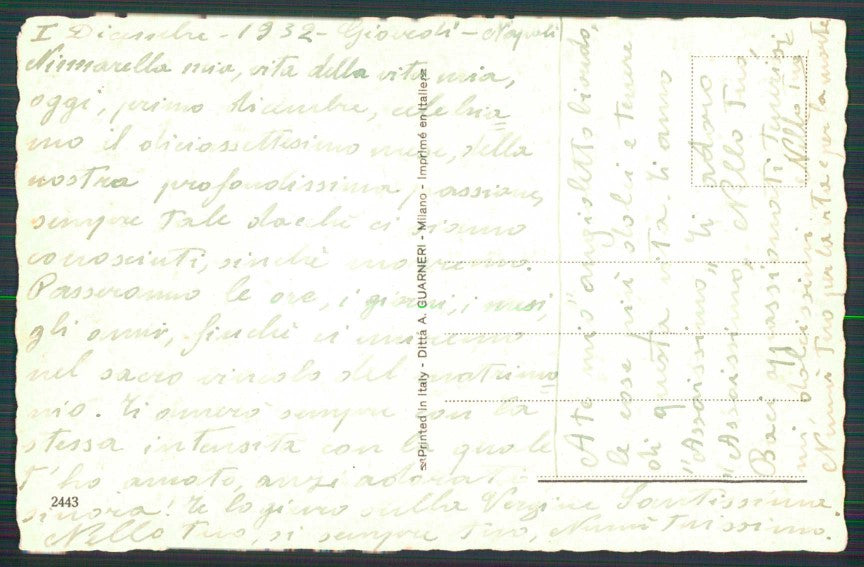 I Dicembre - 1932 - Giovedì - Napoli
Ninnarella mia, vita della vita mia,
oggi, primo dicembre, celebria=
mo il diciassettesimo mese, della
nostra profondissima passione,
sempre tale dacché ci siamo
conosciuti, sinché morremo.
Passeranno le ore, i giorni, i mesi,
gli anni, finché ci uniremo
nel sacro vincolo del matrimo=
nio. Ti amerò sempre con la
stessa intensità con la quale
t'ho amato, anzi adorati
sinora! Te lo giuro sulla Vergine Santissima
Nello tuo, sì sempre tuo, Nunù tuissimo.
A te mio "angioletto biondo,
le cose più dolci e tenere
di questa vita. Ti amo
"Assaissimo" Ti adoro
"Assaissimo," Nello tuo,
Baci appassionati
dolcissimi Nello tuo
Nunù tuo per la vita e per la morte
Printed in Italy - Ditta A. GUARNERI - Milano - Imprimé en Italie
2443